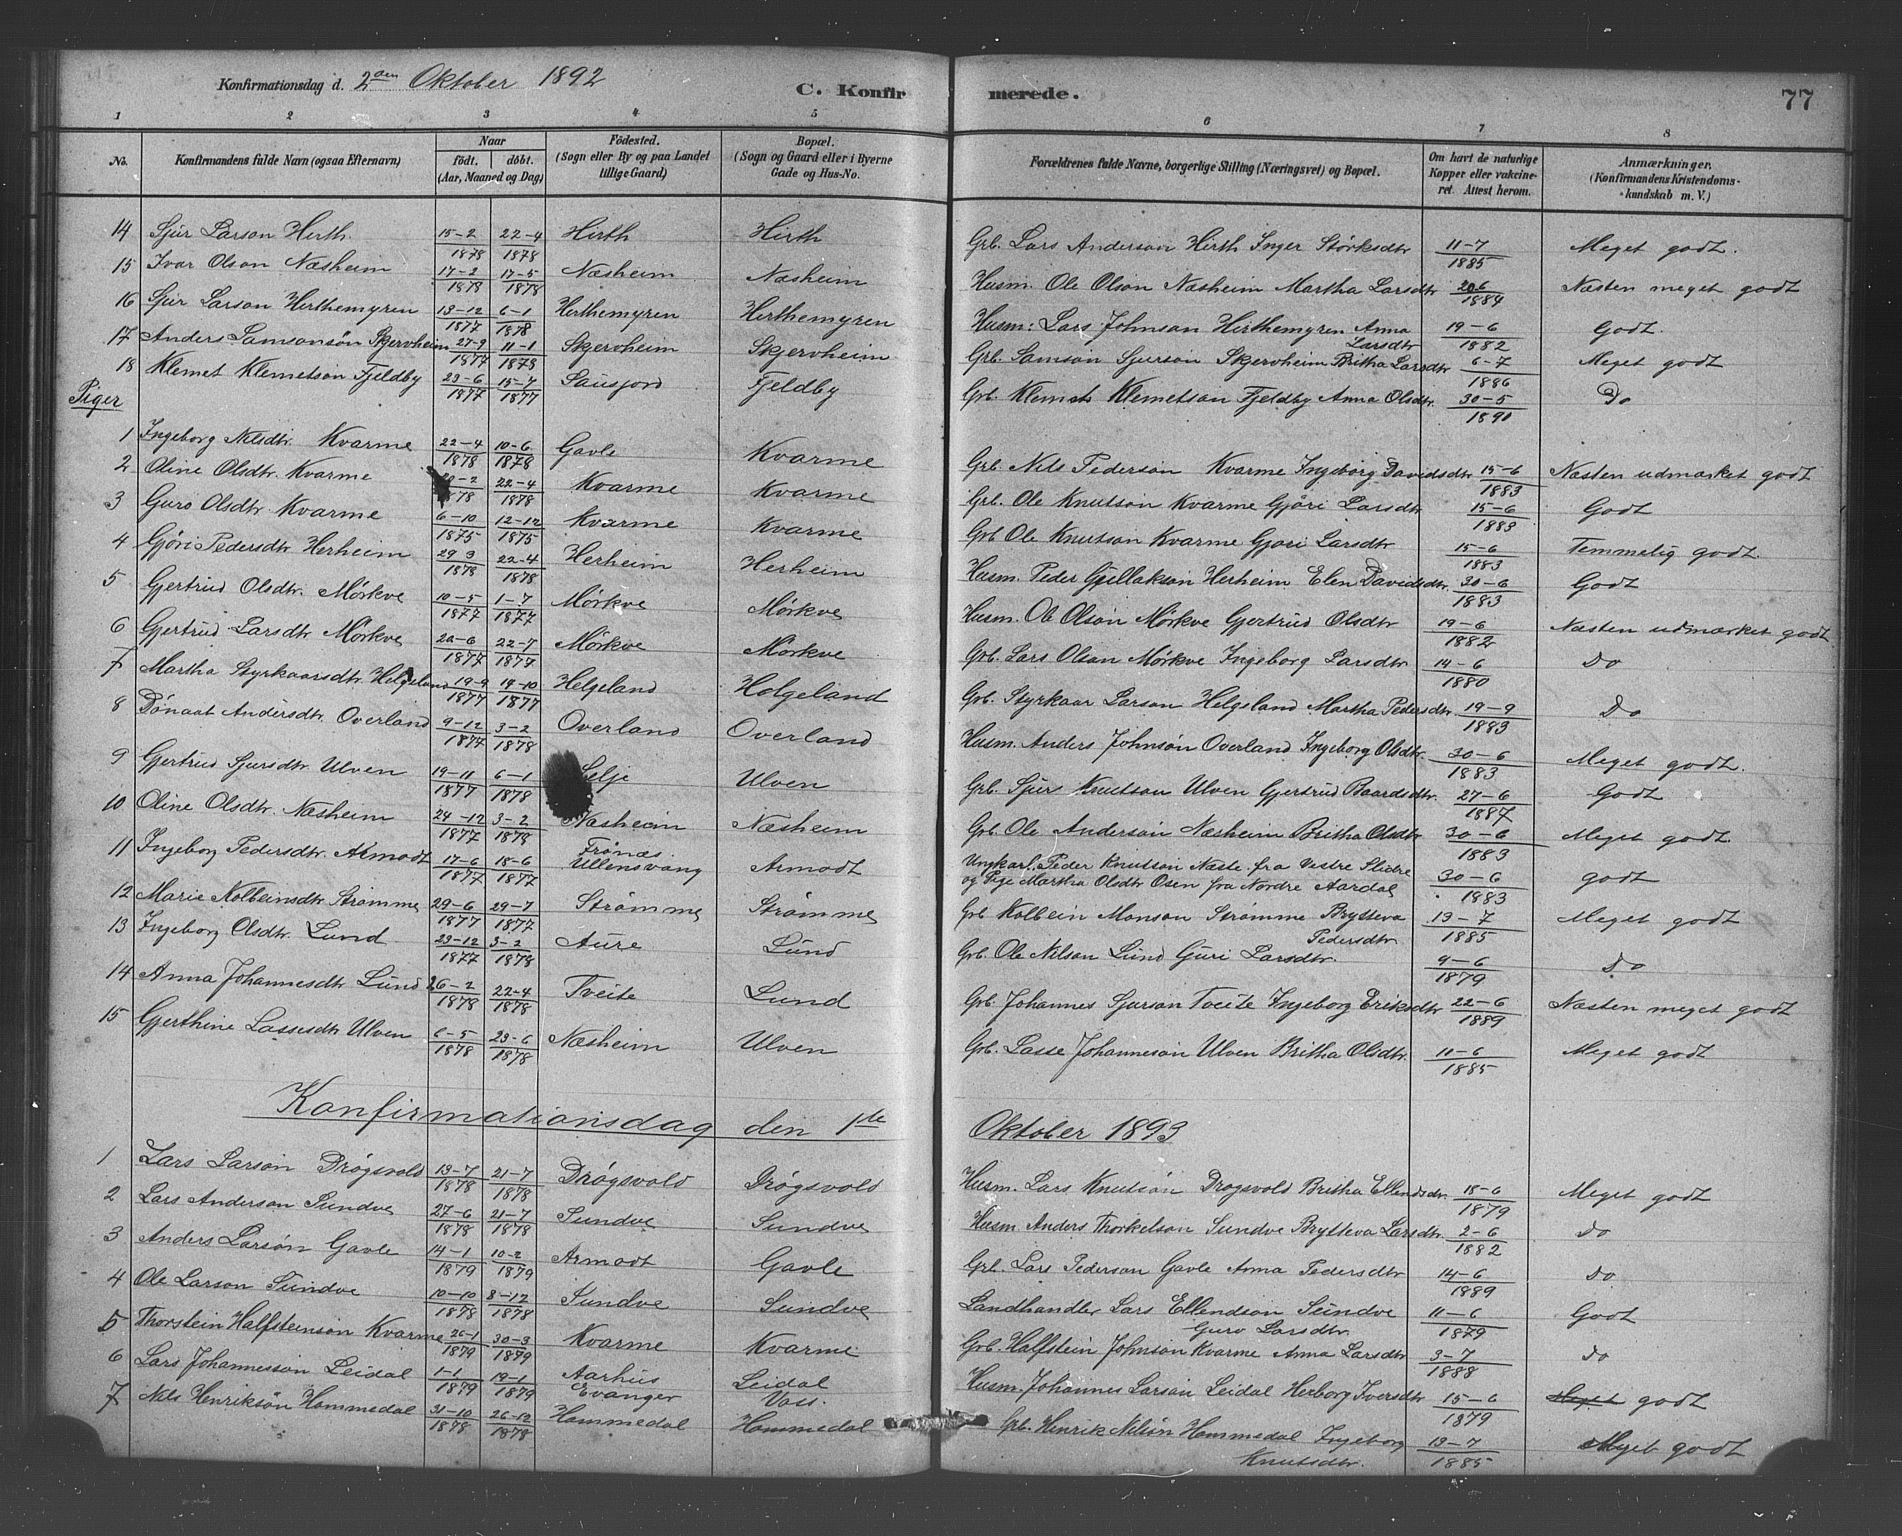 Konfirmationsdag d. 2den Oktober 1892 C. Konfirmerede. 77
1 2 3 4 5 6 7 8
No. Konfirmandens fulde Navn (ogsaa Efternavn) Naar født. døbt. (Aar, Maaned og Dag) Fødested. (Sogn eller By og paa Landet tillige Gaard) Bopæl. (Sogn og Gaard eller i Byerne Gade og Hus-No. Forældrenes fulde Navne, borgerlige Stilling (Næringsvei) og Bopæl. Om havt de naturlige Kopper eller vakcineret. Attest herom. Anmærkninger. (Konfirmandens Kristendomskundskab m. V.)
14 Sjur Larson Herth. 15-2 1878 22-4 1878 Hirth Hirth Grb. Lars Anderson Hirth Inger Størksdtr 11-7 1885 Meget godt.
15 Ivar Olson Næsheim 17-2 1878 17-5 1878 Næsheim Næsheim Husm. Ole Olson Næsheim Martha Larsdtr 1884 Næsten meget godt
16 Sjur Larson Herthemyren 13-12 1877 6-1 1878 Herthemyren Herthemyren Husm: Lars Johnson Herthemyren Anna Larsdtr 19-6 1882 Godt.
17 Anders Samsonsøn Skjervheim 27-9 1877 11-1 1878 Skjervheim Skjervheim Grb. Samson Sjurson Skjervheim Britha Larsdtr 6-7 1886 Meget godt
18 Klemet Klemetson Fjeldby 23-6 1877 15-7 1877 Sausjord Fjeldby Grb. Klemet Klemetson Fjeldby Anna Olsdtr. 30-5 1890 Do
Piger
1 Ingeborg Nelsdtr. Kvarme 22-4 1878 10-6 1878 Gavle Kvarme Grb. Nils Pederson Kvarme Ingeborg Davidsdtr 15-6 1883 Næsten udmærket godt
2 Oline Olsdtr. Kvarme 1878 22-4 1878 Kvarme Kvarme Grb. Ole Knutson Kvarme Gjøri Larsdtr 15-6 1883 Godt
3 Guro Olsdtr Kvarme 6-10 1875 12-12 1875 Kvarme Kvarme Grb. Ole Knutson Kvarme Gjøri Larsdtr 15-6 1883 Temmelig godt
4 Gjøri Pedersdtr Herheim 29-3 1878 22-4 1878 Herheim Herheim Husm. Peder Gjellakson Herheim Elen Davidsdtr. 30-6 1883 Godt
5 Gjertrud Olsdtr. Mørkve 10-5 1877 1-7 1877 Mørkve Mørkve Husm. Ole Olson Mørkve Gjertrud Olsdtr 19-6 1882 Næsten udmærket godt
6 Gjertrud Larsdtr Mørkve 20-6 1877 22-7 1877 Mørkve Mørkve Grb. Lars Olson Mørkve Ingeborg Larsdtr 14-6 1880 Do
7 Martha Styrkaarsdtr Helgeland 19-9 1877 14-10 1877 Helgeland Helgeland Grb. Styrkaar Larson Helgeland Martha Pedersdtr 19-9 1883 Do
8 Dønaat Andersdtr Overland 9-12 1877 3-2 1878 Overland Overland Husm. Anders Johnson Overland Ingeborg Olsdtr. 30-6 1883 Meget godt.
9 Gjertrud Sjursdtr. Ulven 19-11 1877 6-1 1878 Selje Ulven Grb. Sjurs Knutson Ulven Gjertrud Baardsdtr. 27-6 1887 Godt
10 Oline Olsdtr. Næsheim 24-12 1877 3-2 1878 Næsheim Næsheim Grb. Ole Anderson Næsheim Britha Olsdtr 30-6 1883 Meget godt.
11 Ingeborg Pedersdtr. Armodt 17-6 1877 18-6 1877 Frønæs Ullensvang Armodt Ungkarl. Peder Knutson Næste fra Vestre Slidre og Pige Martha Olsdtr Osen fra Nordre Aardal 30-6 1883 godt
12 Marie Kolbeinsdtr Strømme 29-6 1877 29-7 1877 Strømme Strømme Grb Kolbein Monson Strømme Brytteva Pedersdtr. 13-7 1885 Meget godt
13 Ingeborg Olsdtr. Lund 23-12 1877 3-2 1878 Aure Lund Grb. Ole Nilson Lund Guri Larsdtr. 9-6 1879 Do
14 Anna Johannesdtr Lund 26-2 1878 22-4 1878 Tveite Lund Grb. Johannes Sjurson Tveite Ingeborg Eriksdtr 22-6 1889 Næsten meget godt
15 Gjerthine Lassesdtr Ulven 6-5 1878 23-6 1878 Næsheim Ulven Grb. Lasse Johanneson Ulven Britha Olsdtr. 10-6 1885 Meget godt
Konfirmationsdag den 1ste Oktober 1893
1 Lars Larson Drøgsvold 13-7 1878 21-7 1878 Drøgsvold Drøgsvold Husm. Lars Knutson Drøgsvold Britha Ellendsdtr. 18-6 1879 Meget godt
2 Lars Anderson Sundve 27-6 1878 21-7 1878 Sundve Sundve Husm Anders Thorkelson Sundve Brytteva Larsdtr. 2-6 1882 Do
3 Anders Larson Gavle 14-1 1879 10-2 1879 Armodt Gavle Grb. Lars Pederson Gavle Anna Pedersdtr 14-6 1889 Do
4 Ole Larson Sundve 10-10 1878 8-12 1878 Sundve Sundve Landhandler Lars Ellendson Sundve Guro Larsdtr. 11-6 1879 Godt
5 Thorstein Halfsteinson Kvarme 26-1 1879 30-3 1879 Kvarme Kvarme Grb. Halfstein Johnson Kvarme Anna Larsdtr 3-7 1888 Do
6 Lars Johanneson Leidal 1-1 1879 19-1 1879 Aarhus Evanger Leidal Voss. Husm. Johannes Larson Leidal Herborg Iversdtr 15-6 1879 Meget godt
7 Nils Henrikson Hammedal 31-10 1878 26-12 1878 Hommedal Hommedal Grb. Henrik Nilson Hommedal Ingeborg Knutsdtr. 13-7 1885 Meget godt